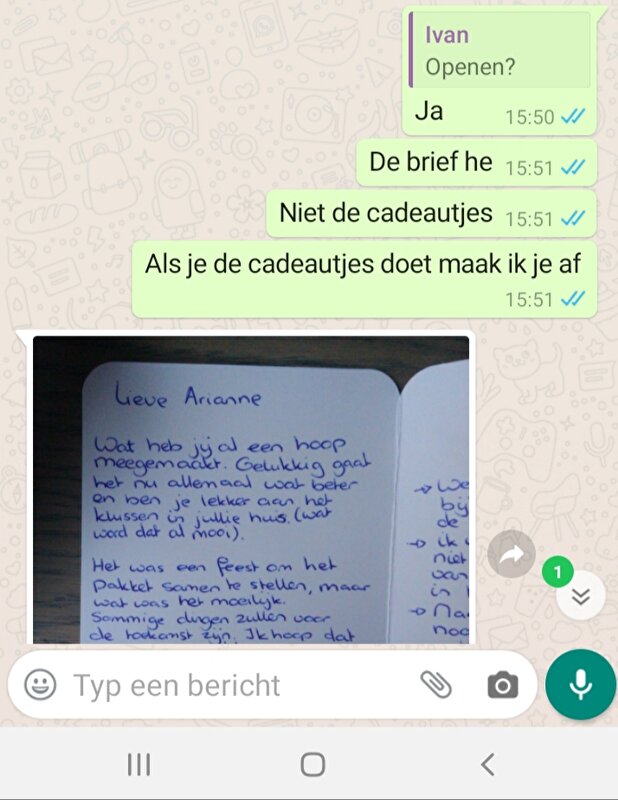 Ivan
Openen?
Ja
15:50
De brief he 15:51
Niet de cadeautjes 15:51
Als je de cadeautjes doet maak ik je af
15:51
Lieve Arianne
Wat heb jij al een hoop
meegemaakt. Gelukkig gaat
het nu allemaal wat beter
en ben je lekker aan het
klussen in jullie huis. (wat
word dat al mooi).
Het was een feest om het
pakket samen te stellen, maar
wat was het moeilijk.
Sommige dingen zullen voor
de toekomst zijn. Ik hoop dat
→ We
bij
de
→ ik
niet
van
in
→ Na
noo
1
Typ een bericht